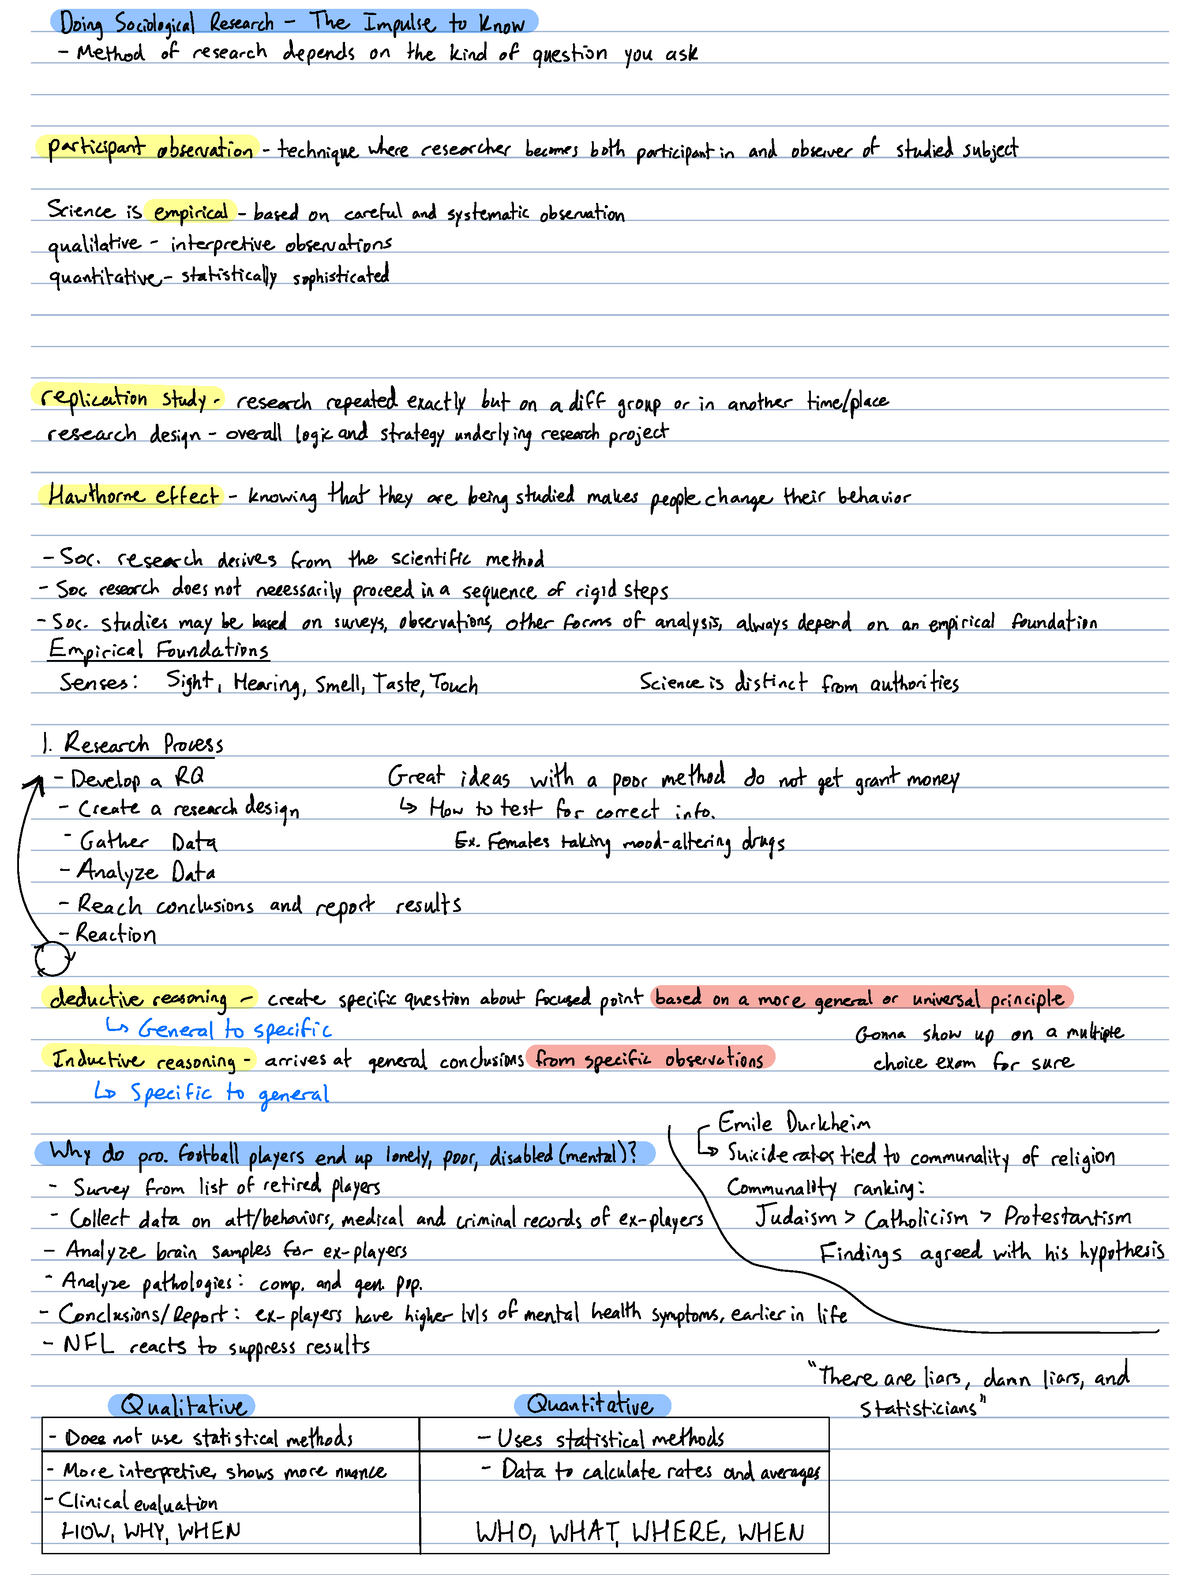 Doing Sociological Research - The Impulse to Know
- Method of research depends on the kind of question you ask
participant observation - technique where researcher becomes both participant in and observer of studied subject
Science is empirical - based on careful and systematic observation
qualitative - interpretive observations
quantitative - statistically sophisticated
replication study - research repeated exactly but on a diff group or in another time/place
research design - overall logic and strategy underlying research project
Hawthorne effect - knowing that they are being studied makes people change their behavior
- Soc. research derives from the scientific method
- Soc research does not necessarily proceed in a sequence of rigid steps
- Soc. studies may be based on surveys, observations, other forms of analysis, always depend on an empirical foundation
Empirical Foundations
Senses: Sight, Hearing, Smell, Taste, Touch
Science is distinct from authorities
1. Research Process
- Develop a RQ
- Create a research design
- Gather Data
- Analyze Data
- Reach conclusions and report results
- Reaction
Great ideas with a poor method do not get grant money
↳ How to test for correct info.
Ex. Females taking mood-altering drugs
deductive reasoning - create specific question about focused point based on a more general or universal principle
↳ General to specific
Inductive reasoning - arrives at general conclusions from specific observations
↳ Specific to general
Gonna show up on a multiple
choice exam for sure
Why do pro. football players end up lonely, poor, disabled (mental)?
- Survey from list of retired players
- Collect data on att/behaviors, medical and criminal records of ex-players
- Analyze brain samples for ex-players
- Analyze pathologies: comp. and gen. pop.
- Conclusions/Report: ex-players have higher lvls of mental health symptoms, earlier in life
- NFL reacts to suppress results
Emile Durkheim
↳ Suicide rates tied to communality of religion
Communality ranking:
Judaism > Catholicism > Protestantism
Findings agreed with his hypothesis
"There are liars, damn liars, and
statisticians"
Qualitative
- Does not use statistical methods
- More interpretive, shows more nuance
- Clinical evaluation
HOW, WHY, WHEN
Quantitative
- Uses statistical methods
- Data to calculate rates and averages
WHO, WHAT, WHERE, WHEN